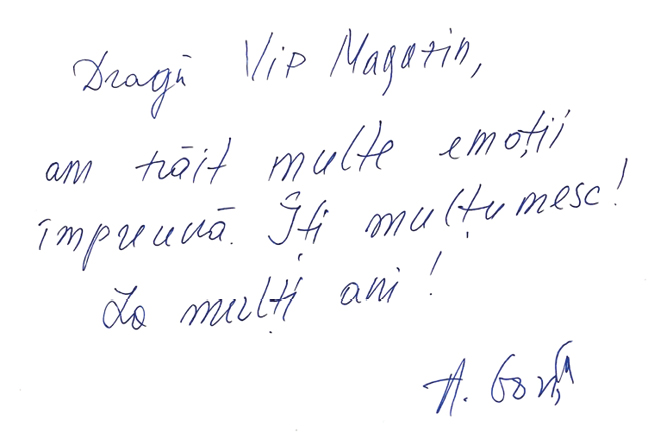 Dragă Vip Magazin,
am trăit multe emoții
împreună. Îți mulțumesc!
La mulți ani!
A.